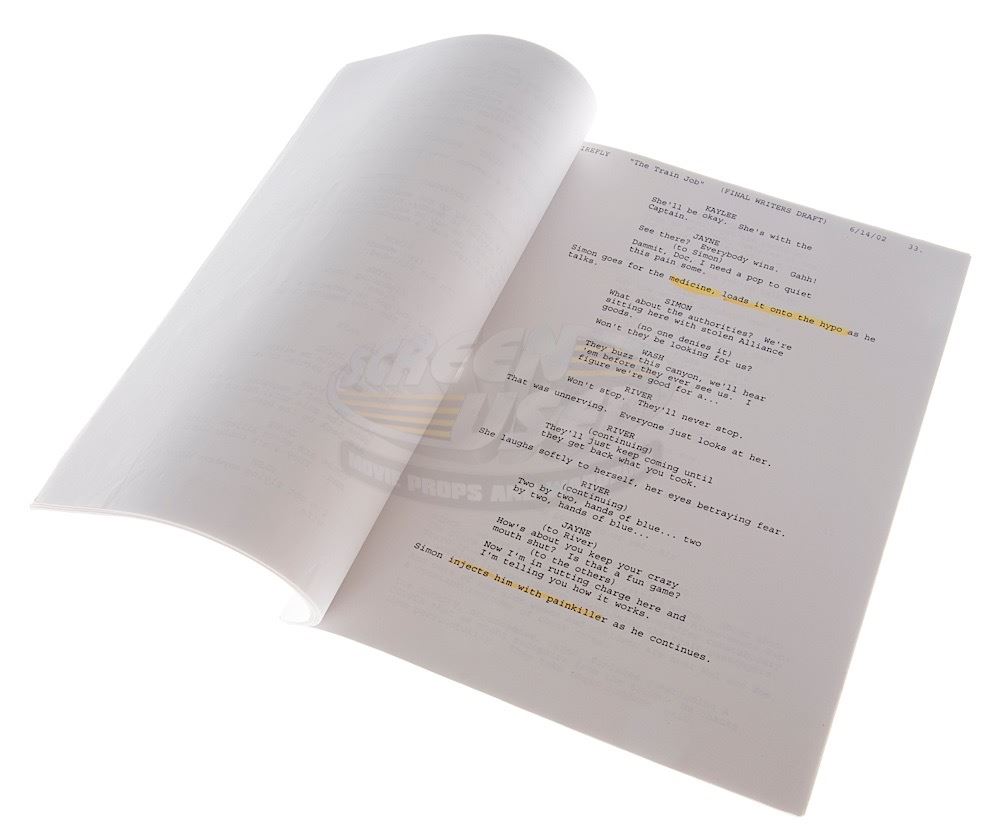 IREFLY "The Train Job" (FINAL WRITERS DRAFT) 6/14/02 33.
KAYLEE
She'll be okay. She's with the
Captain.
JAYNE
See there? Everybody wins. Gahh!
(to Simon)
Dammit, Doc, I need a pop to quiet
this pain some.
Simon goes for the medicine, loads it onto the hypo as he
talks.
SIMON
What about the authorities? We're
sitting here with stolen Alliance
goods.
(no one denies it)
Won't they be looking for us?
WASH
They buzz this canyon, we'll hear
'em before they ever see us. I
figure we're good for a...
RIVER
Won't stop. They'll never stop.
That was unnerving. Everyone just looks at her.
RIVER
(continuing)
They'll just keep coming until
they get back what you took.
She laughs softly to herself, her eyes betraying fear.
RIVER
(continuing)
Two by two, hands of blue... two
by two, hands of blue...
JAYNE
(to River)
How's about you keep your crazy
mouth shut? Is that a fun game?
(to the others)
Now I'm in rutting charge here and
I'm telling you how it works.
Simon injects him with painkiller as he continues.
SCREEN
USED
MOVIE PROPS AND